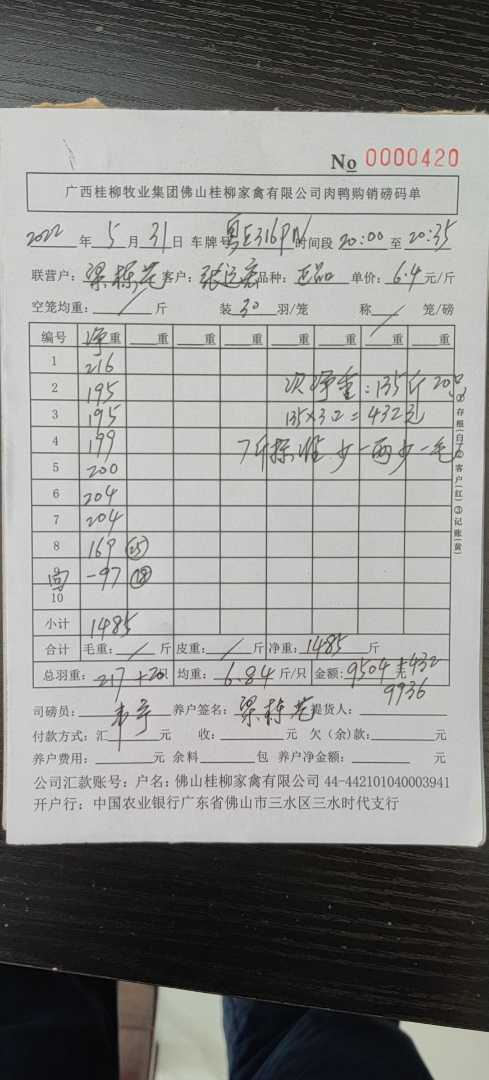 No 0000420
广西桂柳牧业集团佛山桂柳家禽有限公司肉鸭购销磅码单
2022 年 5 月 31 日 车牌号 粤E316PN 时间段 20:00 至 20:35
联营户: 梁栋 客户: 张 品种: 正品 单价: 6.4 元/斤
空笼均重: / 斤 装 30 羽/笼 称 / 笼/磅
编号 净重 重 重 重 重 重 重
1 216
2 195 次净重:135斤 20只
3 195 135×3.2=432元
4 199 7斤标准少一两少一毛
5 200
6 204
7 204
8 169 (25)
回 -97 (18)
10
小计 1485
合计 毛重: / 斤 皮重: / 斤 净重: 1485 斤
总羽重: 217+20 均重: 6.84 斤/只 金额: 9504 元 +432
9936
司磅员: 韦宁 养户签名: 梁栋 提货人:
付款方式: 汇 元 收: 元 欠(余)款: 元
养户费用: 元 余料 包 养户净金额: 元
公司汇款账号: 户名: 佛山桂柳家禽有限公司 44-442101040003941
开户行: 中国农业银行广东省佛山市三水区三水时代支行
①存根(白)②客户(红)③记账(黄)